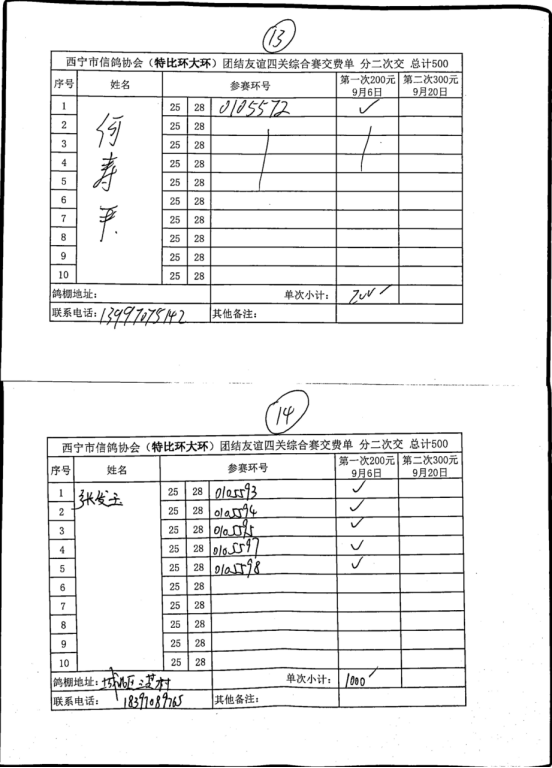 13
西宁市信鸽协会（特比环大环）团结友谊四关综合赛交费单 分二次交 总计500
序号 姓名 参赛环号 第一次200元 9月6日 第二次300元 9月20日
1 何寿平 25 28 0105572 ✓
2 25 28
3 25 28
4 25 28
5 25 28
6 25 28
7 25 28
8 25 28
9 25 28
10 25 28
鸽棚地址： 单次小计： 200 ✓
联系电话：13997075142 其他备注：
14
西宁市信鸽协会（特比环大环）团结友谊四关综合赛交费单 分二次交 总计500
序号 姓名 参赛环号 第一次200元 9月6日 第二次300元 9月20日
1 张发玉 25 28 0105593 ✓
2 25 28 0105594 ✓
3 25 28 0105595 ✓
4 25 28 0105597 ✓
5 25 28 0105598 ✓
6 25 28
7 25 28
8 25 28
9 25 28
10 25 28
鸽棚地址： 村 单次小计： 1000 ✓
联系电话： 18397089765 其他备注：